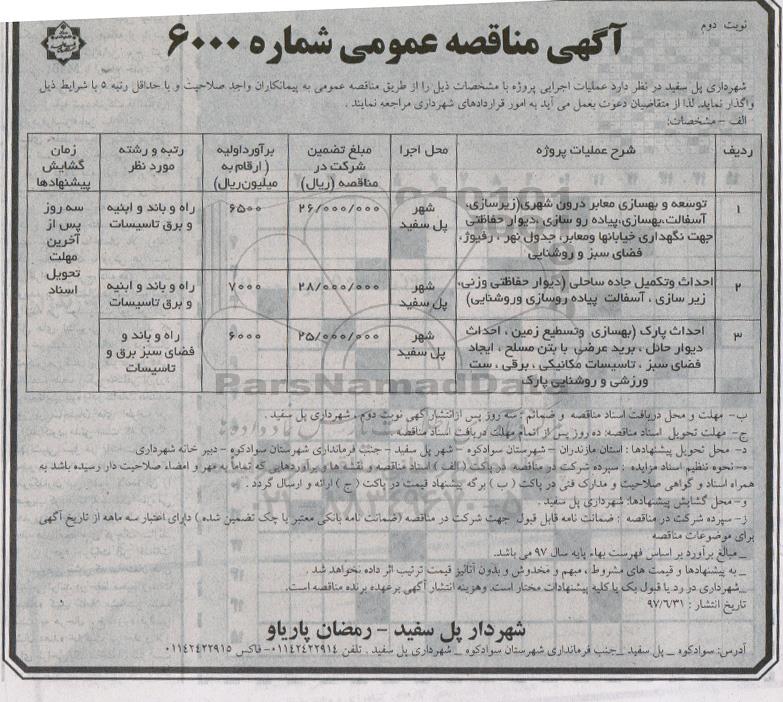 نوبت دوم
آگهی مناقصه عمومی شماره ۶۰۰۰
شهرداری پل سفید در نظر دارد عملیات اجرایی پروژه با مشخصات ذیل را از طریق مناقصه عمومی به پیمانکاران واجد صلاحیت و با حداقل رتبه ۵ با شرایط ذیل
واگذار نماید. لذا از متقاضیان دعوت بعمل می آید به امور قراردادهای شهرداری مراجعه نمایند .
الف – مشخصات:
ردیف | شرح عملیات پروژه | محل اجرا | مبلغ تضمین شرکت در مناقصه (ریال) | برآورداولیه ( ارقام به میلیون‌ریال) | رتبه و رشته مورد نظر | زمان گشایش پیشنهادها
۱ | توسعه و بهسازی معابر درون شهری(زیرسازی، آسفالت،بهسازی،پیاده رو سازی ،دیوار حفاظتی جهت نگهداری خیابانها ومعابر، جدول نهر ، رفیوژ، فضای سبز و روشنایی | شهر پل سفید | ۲۶/۰۰۰/۰۰۰ | ۶۵۰۰ | راه و باند و ابنیه و برق تاسیسات | سه روز پس از آخرین مهلت تحویل اسناد
۲ | احداث وتکمیل جاده ساحلی (دیوار حفاظتی وزنی، زیر سازی ، آسفالت پیاده روسازی وروشنایی) | شهر پل سفید | ۲۸/۰۰۰/۰۰۰ | ۷۰۰۰ | راه و باند و ابنیه و برق تاسیسات
۳ | احداث پارک (بهسازی وتسطیع زمین ، احداث دیوار حائل ، برید عرضی با بتن مسلح ، ایجاد فضای سبز ، تاسیسات مکانیکی ، برقی ، ست ورزشی و روشنایی پارک | شهر پل سفید | ۲۵/۰۰۰/۰۰۰ | ۶۰۰۰ | راه و باند و فضای سبز برق و تاسیسات
ParsNamadData
ب– مهلت و محل دریافت اسناد مناقصه و ضمائم : سه روز پس ازانتشار آگهی نوبت دوم ، شهرداری پل سفید .
ج– مهلت تحویل اسناد مناقصه: ده روز پس از اتمام مهلت دریافت اسناد مناقصه
د– محل تحویل پیشنهادها : استان مازندران – شهرستان سوادکوه – شهر پل سفید – جنب فرمانداری شهرستان سوادکوه – دبیر خانه شهرداری
ه–نحوه تنظیم اسناد مزایده : سپرده شرکت در مناقصه در پاکت ( الف ) اسناد مناقصه و نقشه ها و برآوردهایی که تماماً به مهر و امضاء صلاحیت دار رسیده باشد به
همراه اسناد و گواهی صلاحیت و مدارک فنی در پاکت ( ب ) برگه پیشنهاد قیمت در پاکت ( ج ) ارائه و ارسال گردد .
و–محل گشایش پیشنهادها: شهرداری پل سفید .
ز– سپرده شرکت در مناقصه : ضمانت نامه قابل قبول جهت شرکت در مناقصه (ضمانت نامه بانکی معتبر یا چک تضمین شده ) دارای اعتبار سه ماهه از تاریخ آگهی
برای موضوعات مناقصه
_ مبالغ برآورد بر اساس فهرست بهاء پایه سال ۹۷ می باشد.
_ به پیشنهادها و قیمت های مشروط ، مبهم و مخدوش و بدون آنالیز قیمت ترتیب اثر داده نخواهد شد .
_شهرداری در رد یا قبول یک یا کلیه پیشنهادات مختار است. وهزینه انتشار آگهی برعهده برنده مناقصه است.
تاریخ انتشار : ۹۷/۶/۳۱
شهردار پل سفید – رمضان پاریاو
آدرس: سوادکوه _ پل سفید _جنب فرمانداری شهرستان سوادکوه _ شهرداری پل سفید . تلفن ۰۱۱۴۲۴۲۲۹۱۴– فاکس ۰۱۱۴۲۴۲۲۹۱۵